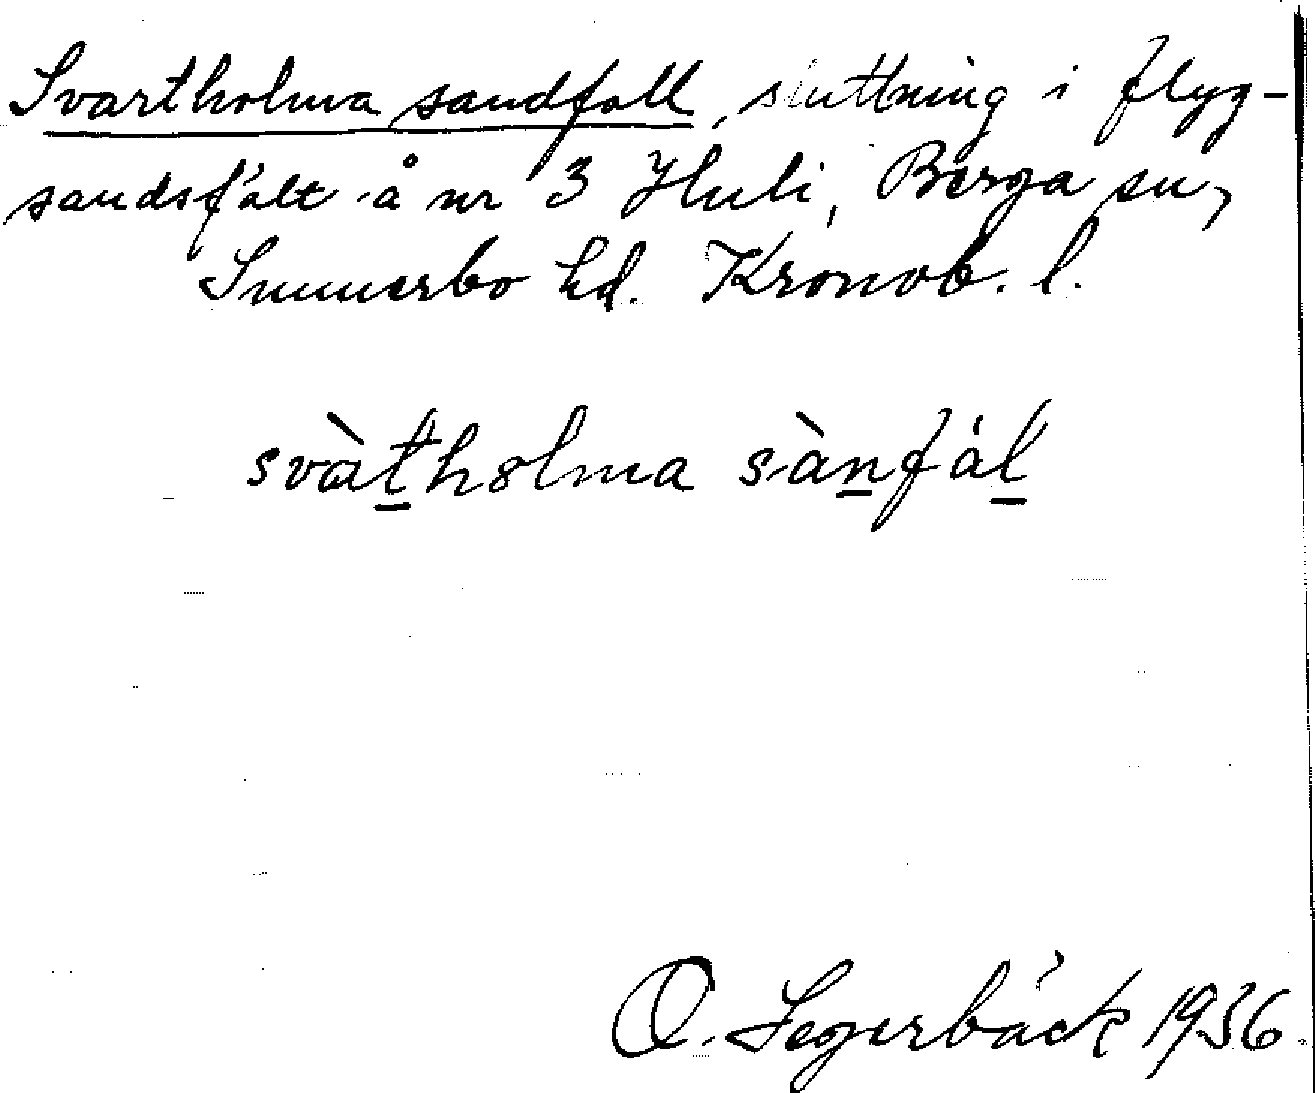 Svartholma sandfall, sluttning i flyg-
sandsfält å nr 3 Huli, Berga sn,
Sunnerbo hd. Kronob. l.
svàt̲holma sàn̲fál̲
O. Segerbäck 1936